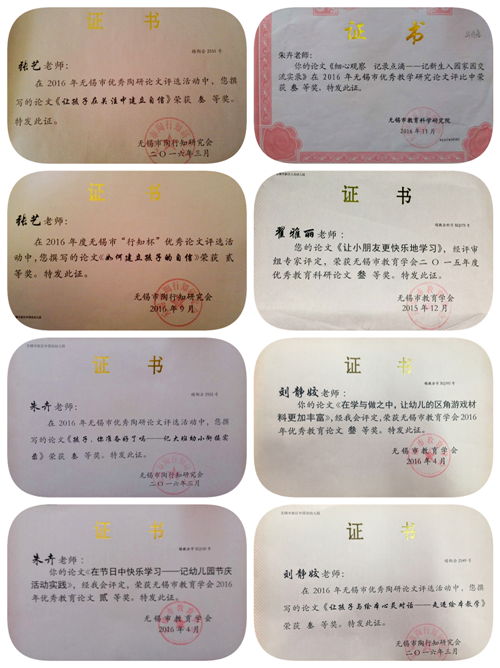 证 书
张艺老师：
在 2016 年无锡市优秀陶研论文评选活动中，您撰
写的论文《让孩子在关注中建立自信》荣获 叁 等奖。
特发此证。
无锡市陶行知研究会
二〇一六年三月
证 书
朱卉老师：
你的论文《细心观察 记录点滴——记新生入园家园交
流实录》在 2016 年无锡市优秀教学研究论文评比中荣
获 叁 等奖。特发此证。
无锡市教育科学研究院
2016 年 11 月
证 书
张艺老师：
在 2016 年度无锡市“行知杯”优秀论文评选活
动中，您撰写的论文《如何建立孩子的自信》荣获 贰
等奖。特发此证。
无锡市陶行知研究会
2016 年 9 月
证 书
翟雅丽老师：
您的论文《让小朋友更快乐地学习》，经评审
组专家评定，荣获无锡市教育学会二〇一五年度
优秀教育科研论文 叁 等奖。特发此证。
无锡市教育学会
2015 年 12 月
证 书
朱卉老师：
在 2016 年无锡市优秀陶研论文评选活动中，您
撰写的论文《孩子，你准备好了吗——记大班幼小衔接实
录》荣获 叁 等奖。特发此证。
无锡市陶行知研究会
二〇一六年三月
证 书
刘静姣老师：
你的论文《在学与做之中，让幼儿的区角游戏材
料更加丰富》，经我会评定，荣获无锡市教育学会 2016
年优秀教育论文 叁 等奖。特发此证。
无锡市教育学会
2016 年 4 月
证 书
朱卉老师：
你的论文《在节日中快乐学习——记幼儿园节庆
活动实践》，经我会评定，荣获无锡市教育学会 2016
年优秀教育论文 贰 等奖。特发此证。
无锡市教育学会
2016 年 4 月
证 书
刘静姣老师：
在 2016 年无锡市优秀陶研论文评选活动中，您
撰写的论文《让孩子与绘本心灵对话——走进绘本教学》
荣获 叁 等奖。特发此证。
无锡市陶行知研究会
二〇一六年三月